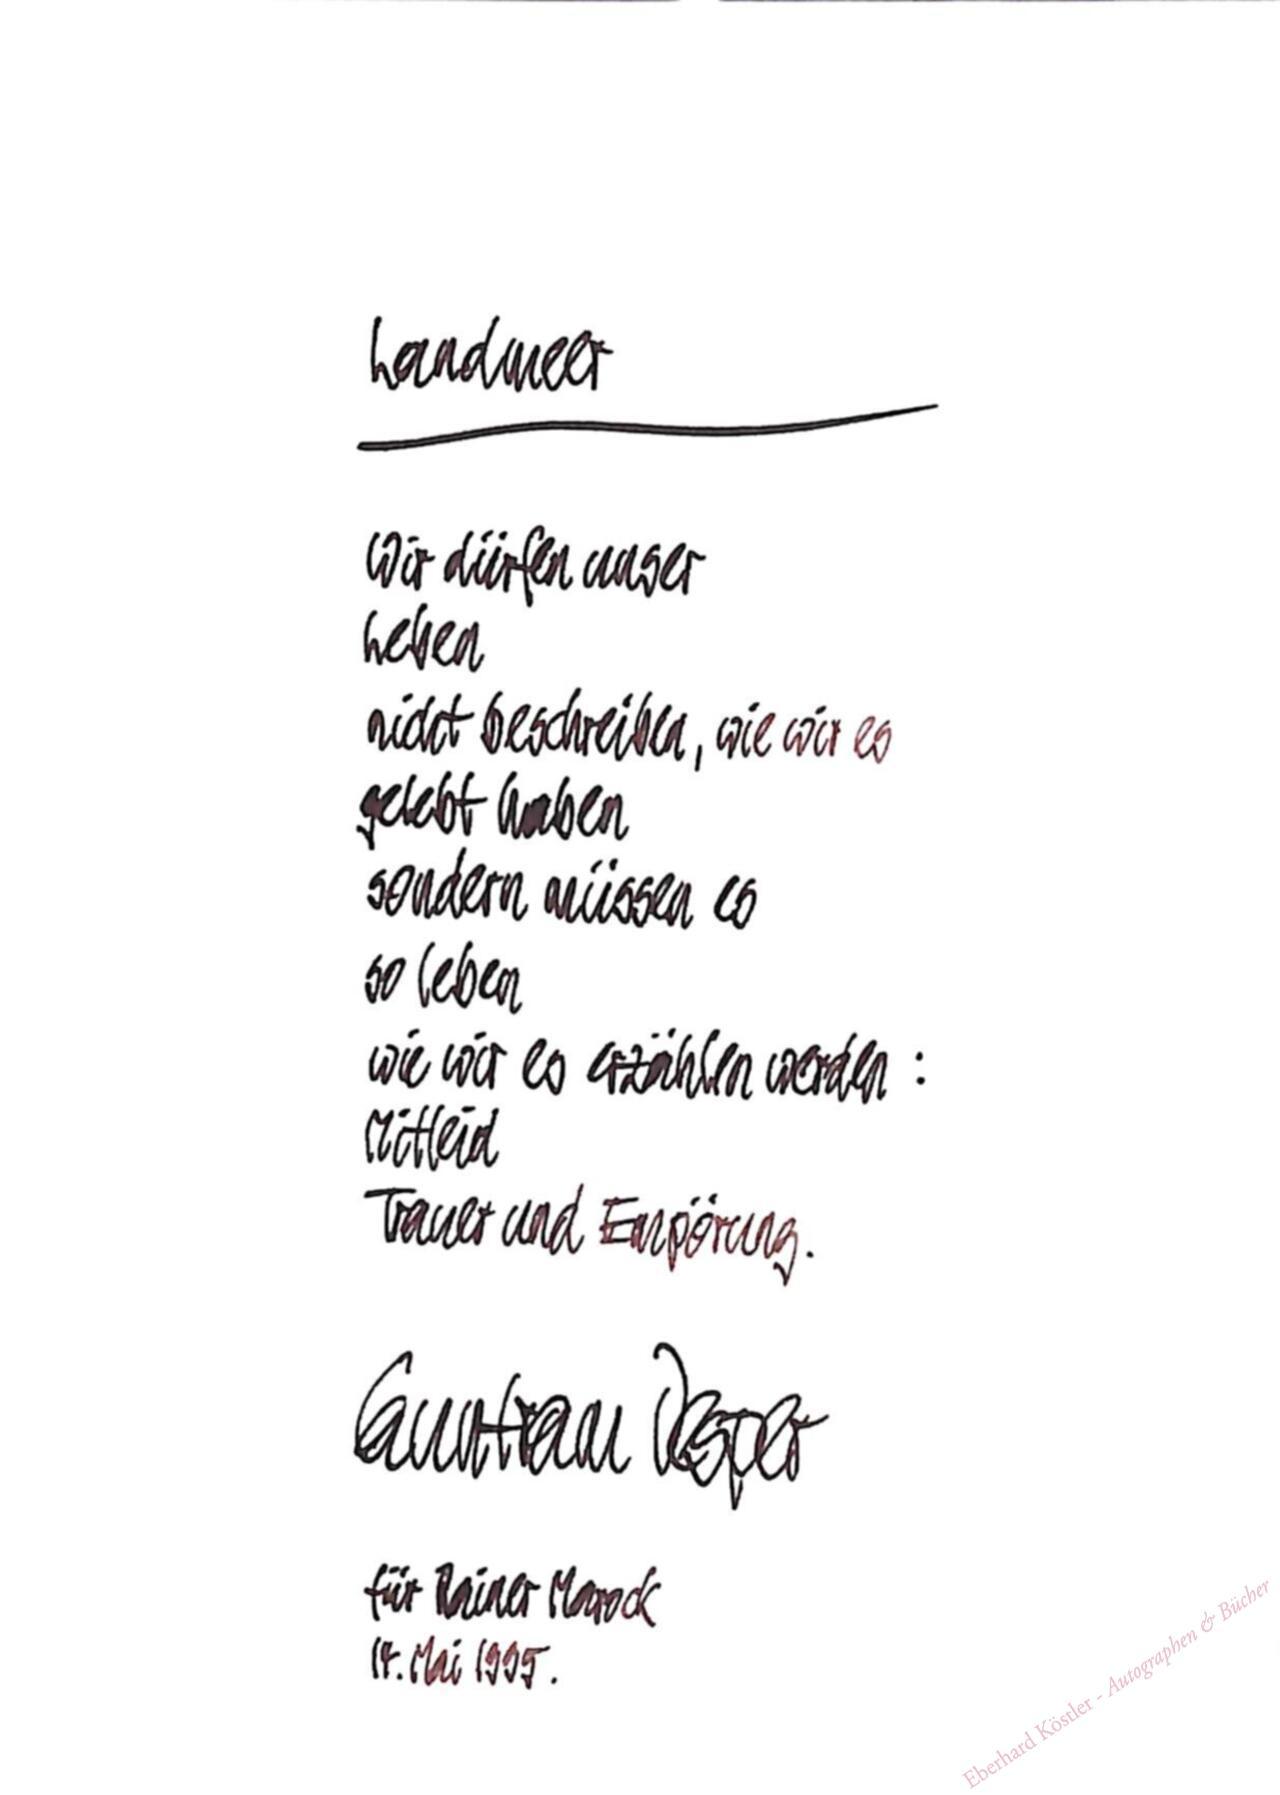 Landmeer
Wir dürfen unser
Leben
nicht beschreiben, wie wir es
gelebt haben
sondern müssen es
so leben
wie wir es erzählen werden :
Mitleid
Trauer und Empörung.
Guntram Vesper
für Rainer Marock
14. Mai 1995.
Eberhard Köstler - Autographen & Bücher